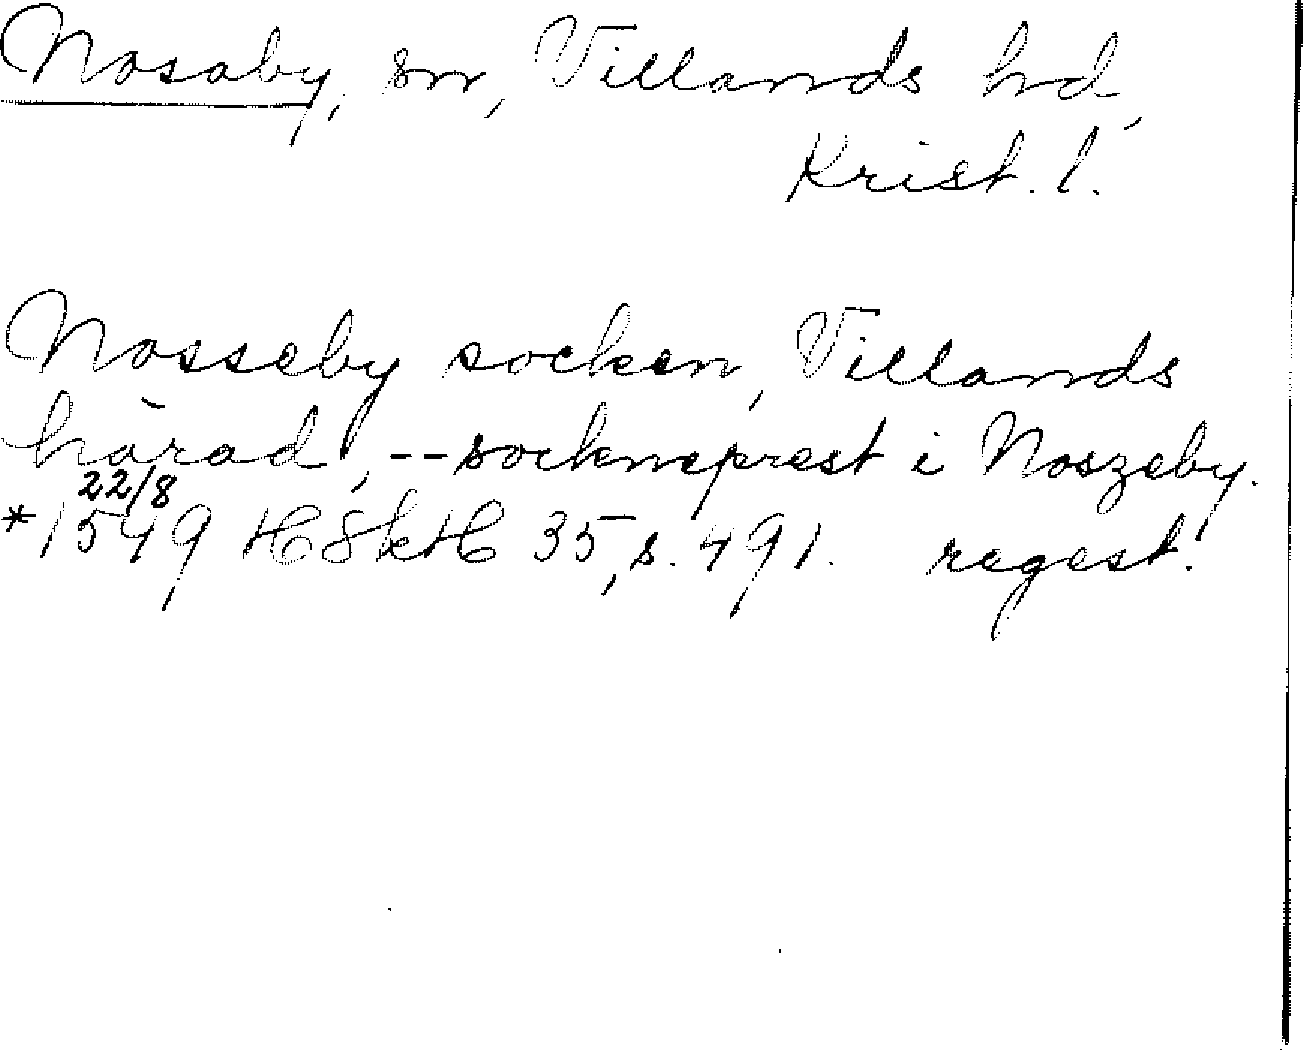 Nosaby, sn, Villands hd,
Krist. l.
Nosseby socken, Villands
härad, -- sockneprest i Noszeby.
22/8
*1549 HSkH 35, s. 491. regest.